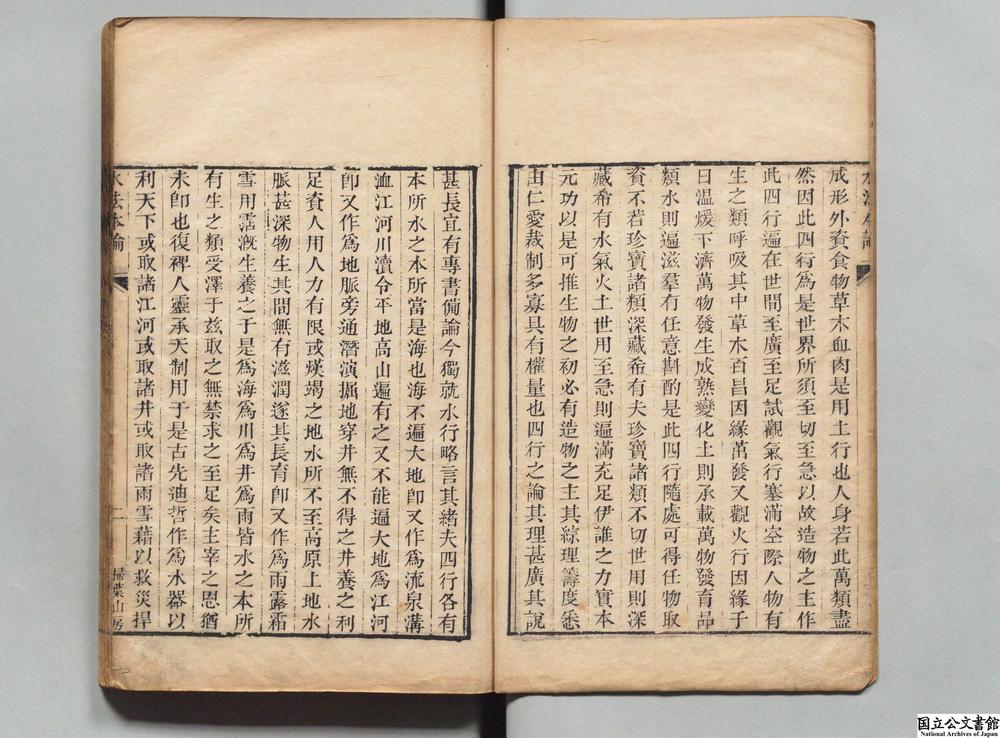 成形外資食物草木血肉是用土行也人身若此萬類盡
然因此四行爲是世界所須至切至急以故造物之主作
此四行遍在世間至廣至足試觀氣行塞滿空際人物有
生之類呼吸其中草木百昌因緣茁發又觀火行因緣于
日溫煖下濟萬物發生成熟變化土則承載萬物發育品
類水則遍滋羣有任意斟酌是此四行隨處可得任物取
資不若珍寶諸類深藏希有夫珍寶諸類不切世用則深
藏希有水氣火土世用至急則遍滿充足伊誰之力實本
元功以是可推生物之初必有造物之主其綜理籌度悉
由仁愛裁制多寡具有權量也四行之論其理甚廣其說
甚長宜有專書備論今獨就水行略言其緒夫四行各有
本所水之本所當是海也海不遍大地卽又作爲流泉溝
洫江河川瀆分平地高山遍有之又不能遍大地爲江河
卽又作爲地脈旁通潛演掘地穿井無不得之井養之利
足資人用人力有限或熯竭之地水所不至高原上地水
脈甚深物生其間無有滋潤遂其長育卽又作爲雨露霜
雪用霑漑生養之于是爲海爲川爲井爲雨皆水之本所
有生之類受澤于玆取之無禁求之至足矣主宰之恩猶
未卽也復裨人靈承天制用于是古先迪哲作爲水器以
利天下或取諸江河或取諸井或取諸雨雪藉以救災捍
水法本論
二
掃葉山房
国立公文書館
National Archives of Japan